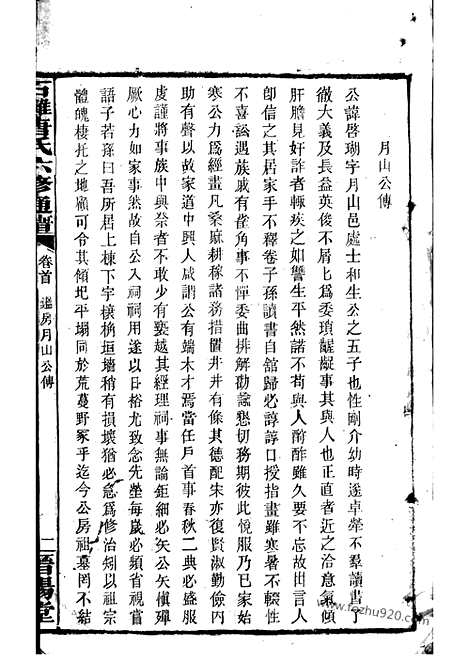 月山公傳
公諱啓瑚字月山邑處士和生公之五子也性剛介幼時遂卓犖不羣讀書了
徹大義及長益英俊不屑屑爲委瑣齷齪事其與人也正直者近之洽意氣傾
肝膽見奸詐者輒疾之如讐生平然諾不苟與人酌酢雖久要不忘故出言人
卽信之其居家手不釋卷子孫讀書自舘歸必諄諄口授指畫雖寒暑不輟性
不喜訟遇族戚有雀角事不憚委曲排解勸諭懇切務期彼此悅服乃已家始
寒公力爲經畫凡桑麻耕稼諸務措置井井有條其德配宋亦復賢淑勤儉內
助有聲以故家道中興人咸謂公有端木才焉當任戶首事春秋二典必盛服
虔謹將事族中與祭者不敢少有褻越其經理祠事無論鉅細必矢公矢愼殫
厥心力如家事然故自公入祠祠用遂以日裕尤致念先塋每歲必頻省視嘗
語子若孫曰吾所居上棟下宇榱桷垣墻稍有損壞猶必急爲修治矧以祖宗
體魄棲托之地顧可令其傾圯平塌同於荒蔓野冢乎迄今公房祖墓罔不結
石灘唐氏六修通譜
卷首
遜房月山公傳
一
晋陽堂
www.fozhu920.com